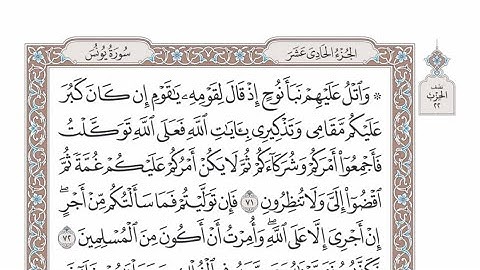 الجزء الحادي عشر
سورة يونس
نصف
الحزب
٢٢
۞ وَٱتۡلُ عَلَيۡهِمۡ نَبَأَ نُوحٍ إِذۡ قَالَ لِقَوۡمِهِۦ يَٰقَوۡمِ إِن كَانَ كَبُرَ
عَلَيۡكُم مَّقَامِي وَتَذۡكِيرِي بِـَٔايَٰتِ ٱللَّهِ فَعَلَى ٱللَّهِ تَوَكَّلۡتُ
فَأَجۡمِعُوٓاْ أَمۡرَكُمۡ وَشُرَكَآءَكُمۡ ثُمَّ لَا يَكُنۡ أَمۡرُكُمۡ عَلَيۡكُمۡ غُمَّةٗ ثُمَّ
ٱقۡضُوٓاْ إِلَيَّ وَلَا تُنظِرُونِ ٧١ فَإِن تَوَلَّيۡتُمۡ فَمَا سَأَلۡتُكُم مِّنۡ أَجۡرٍۖ
إِنۡ أَجۡرِيَ إِلَّا عَلَى ٱللَّهِۖ وَأُمِرۡتُ أَنۡ أَكُونَ مِنَ ٱلۡمُسۡلِمِينَ ٧٢